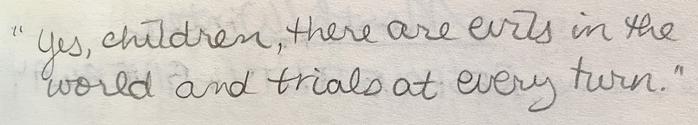 "Yes, children, there are evils in the
world and trials at every turn."